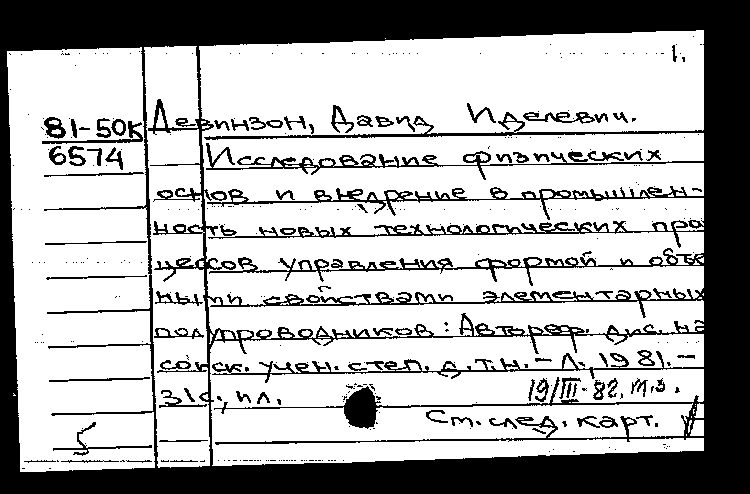 1.
81-50К Левинзон, Давид Иделевич.
6574 Исследование физических
основ и внедрение в промышлен-
ность новых технологических про
цессов управления формой и объе
ными свойствами элементарных
полупроводников: Автореф. дис. на
соиск. учен. степ. д.т.н. - Л., 1981. -
31с., ил. 19/III-82. м.э.
См. след. карт.
5